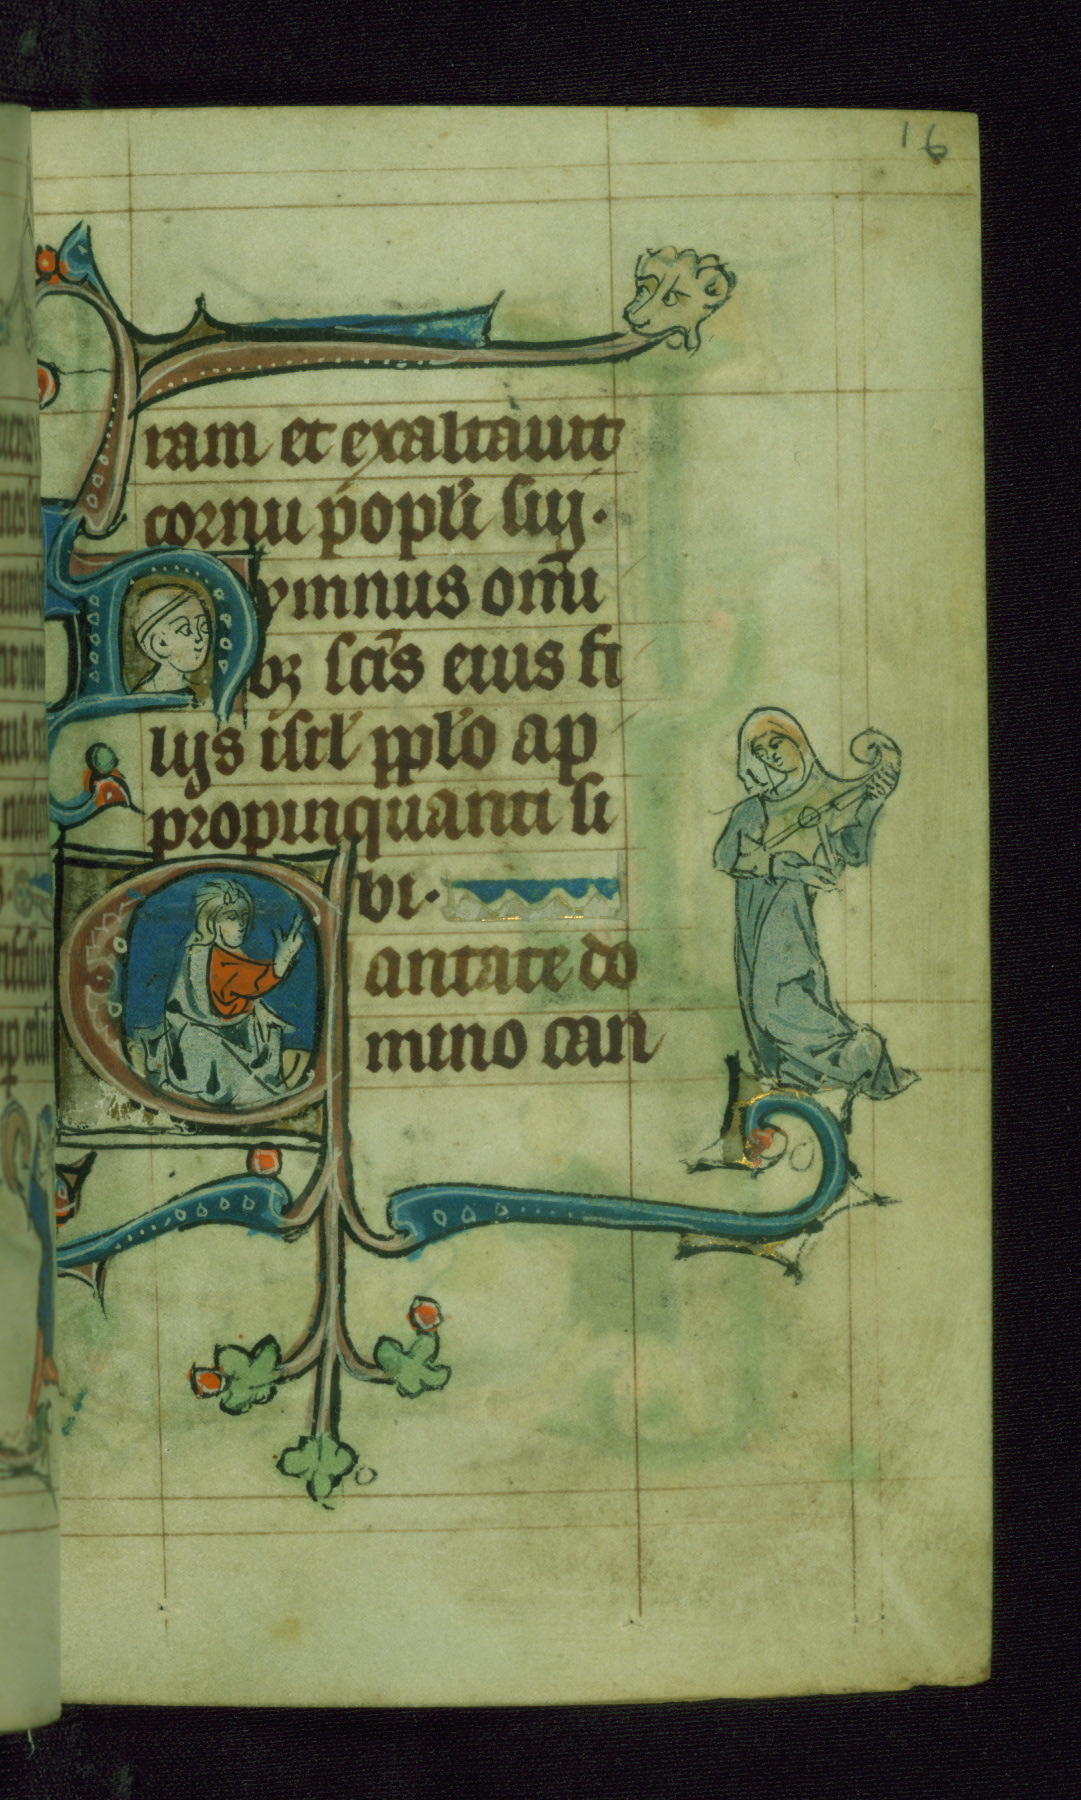 16
ram et exaltauit
cornu p̃opl'i suj.
Hymnus om̃i
bꝫ sc̃is eius fi
lijs isrl' ppl'o ap
propinquanti si
bi.
Cantate do
mino can